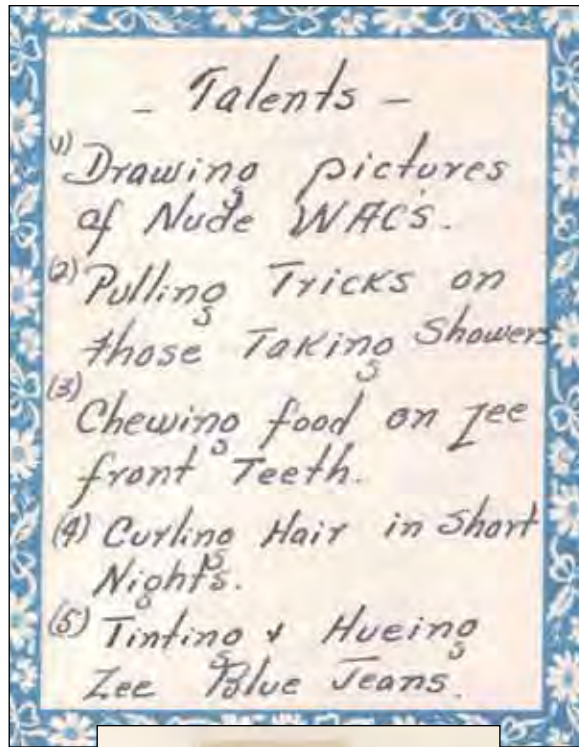 - Talents -
(1) Drawing pictures
of Nude WAC's.
(2) Pulling Tricks on
those Taking Showers
(3) Chewing food on Zee
front Teeth.
(4) Curling Hair in Short
Nights.
(5) Tinting & Hueing
Zee Blue Jeans.